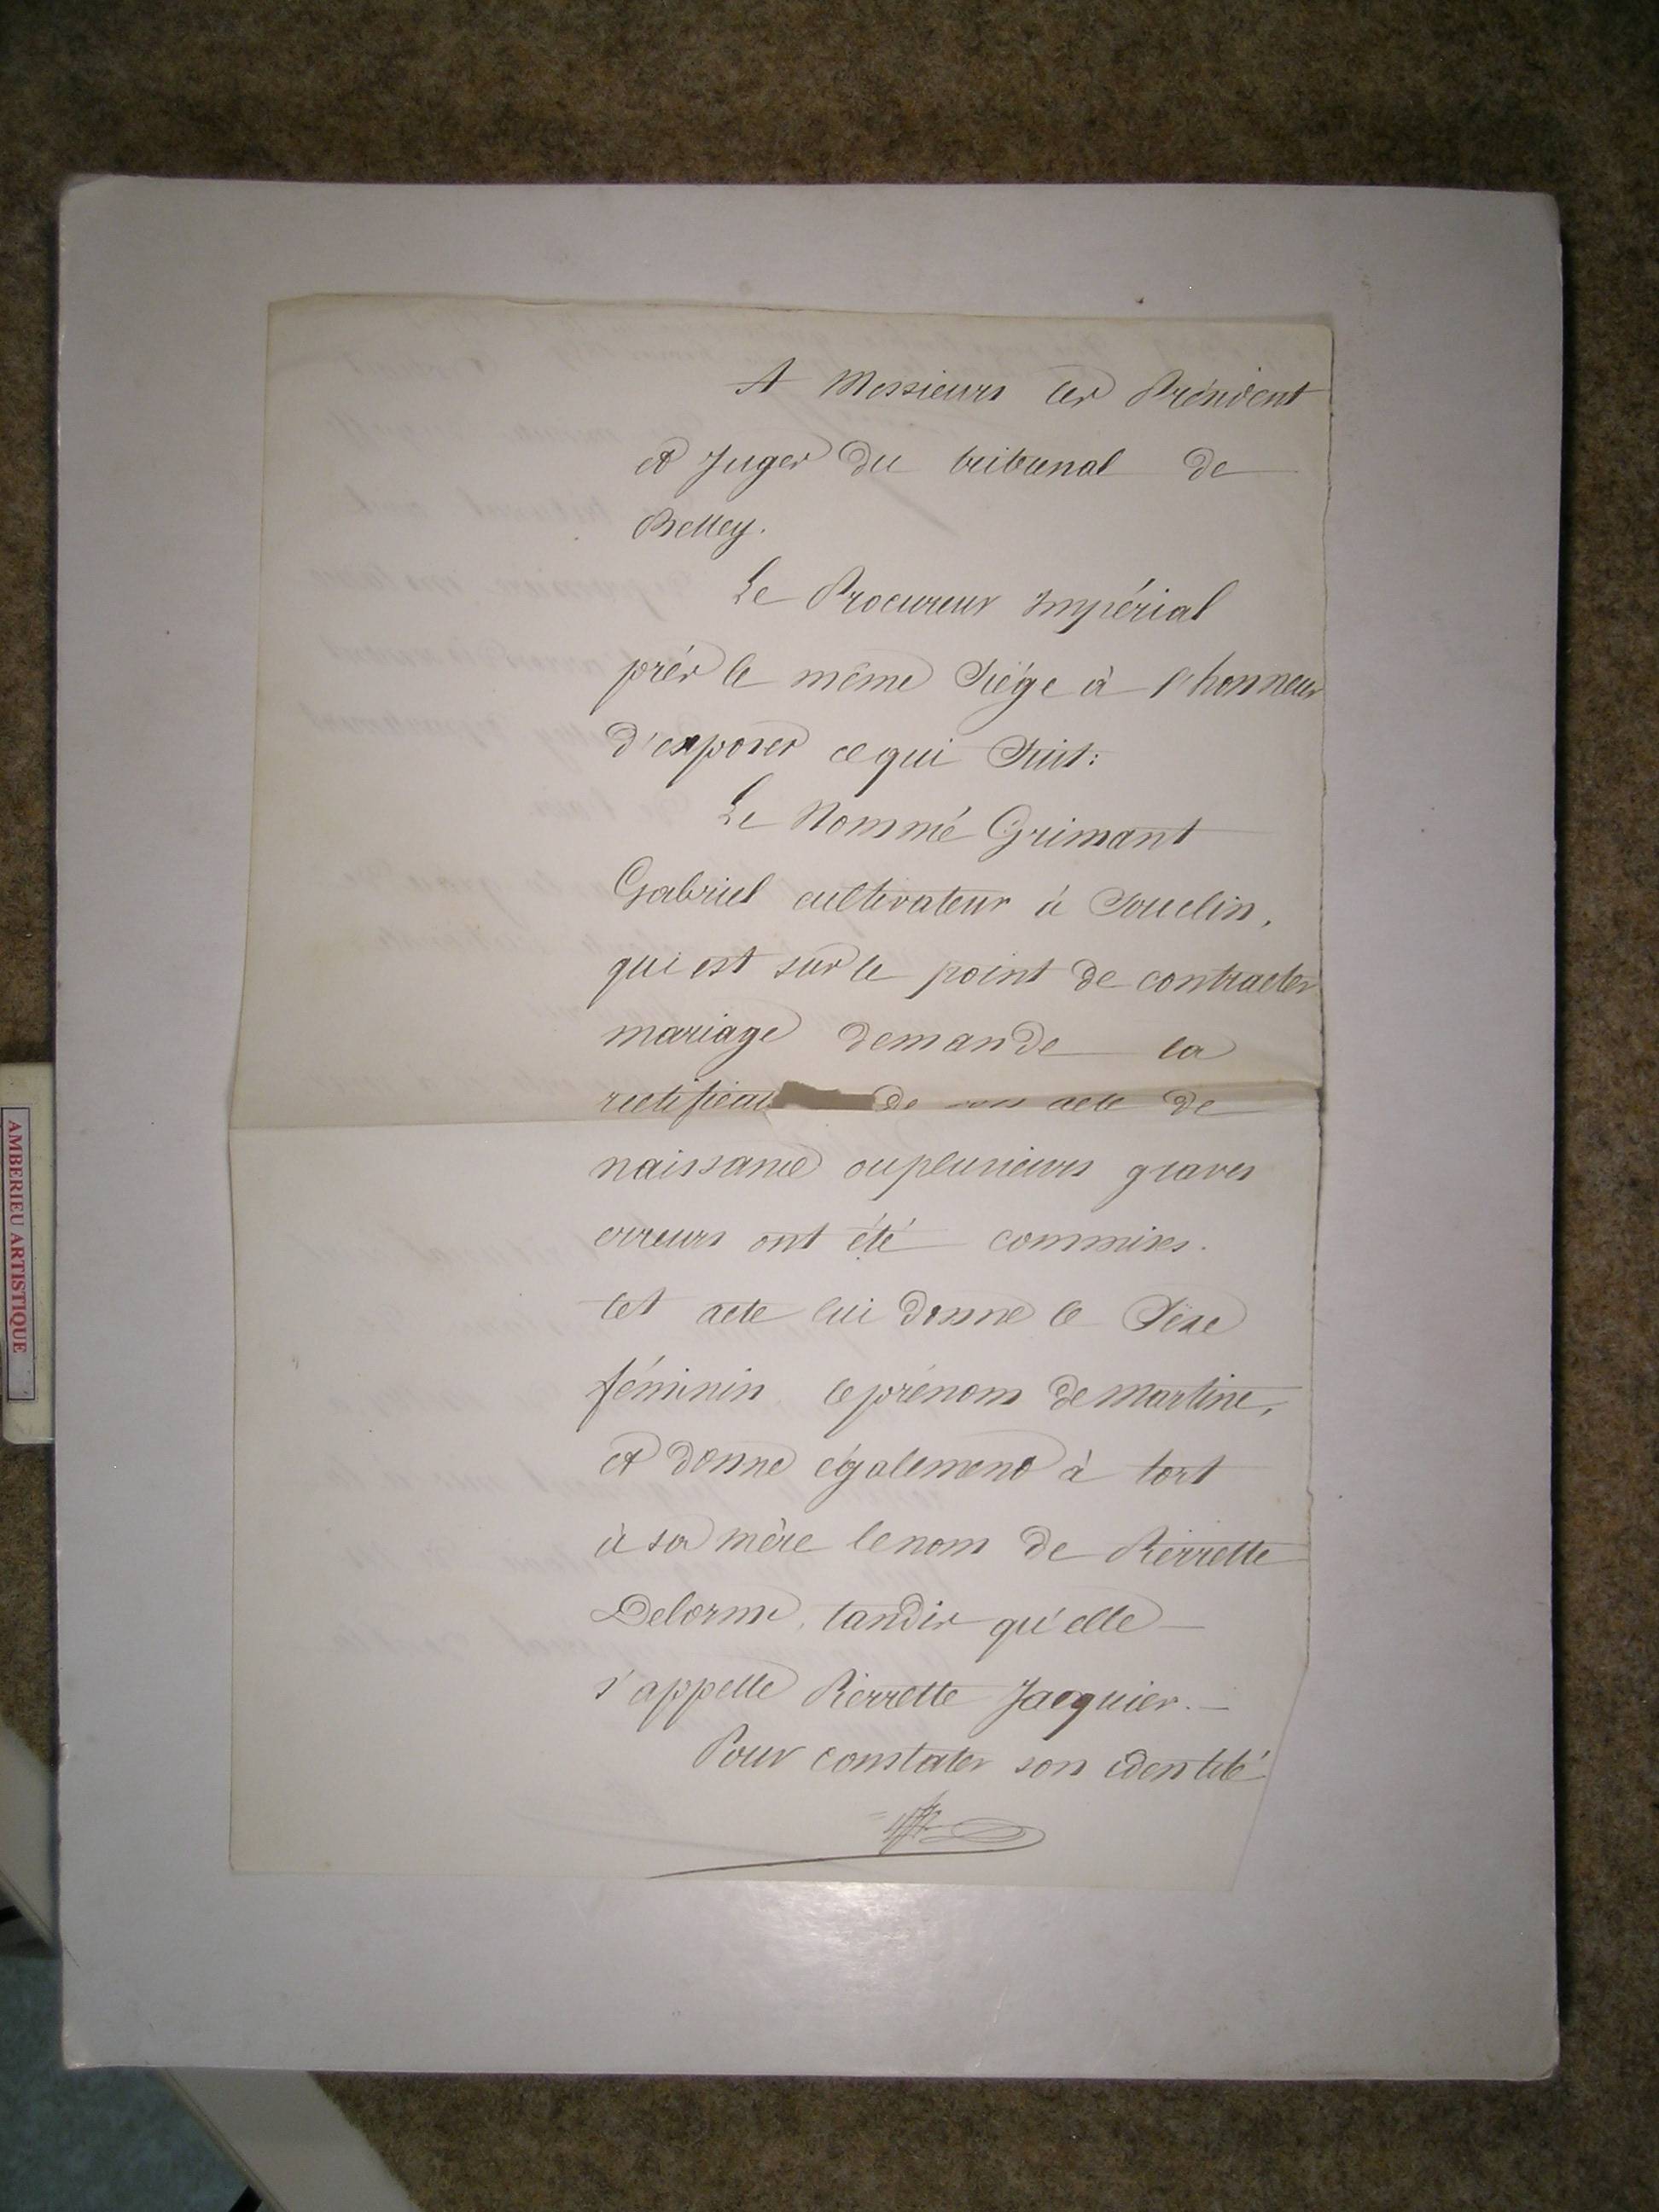 A Messieurs les Président
et Juges du tribunal de
Belley.
Le Procureur Impérial
près le même Siége à l'honneur
d'exposer ce qui Suit:
Le Nommé Grimant
Gabriel cultivateur à Souclin,
qui est sur le point de contracter
mariage demande la
rectificat de son acte de
naissance ou plusieurs graves
erreurs ont été commises.
Cet acte lui donne le Séxe
féminin le prénom de Martine,
et donne également à tort
à sa mère le nom de Pierrette
Delorme, tandis qu'elle
s'appelle Pierrette Jacquier.
Pour constater son identité
AMBERIEU ARTISTIQUE